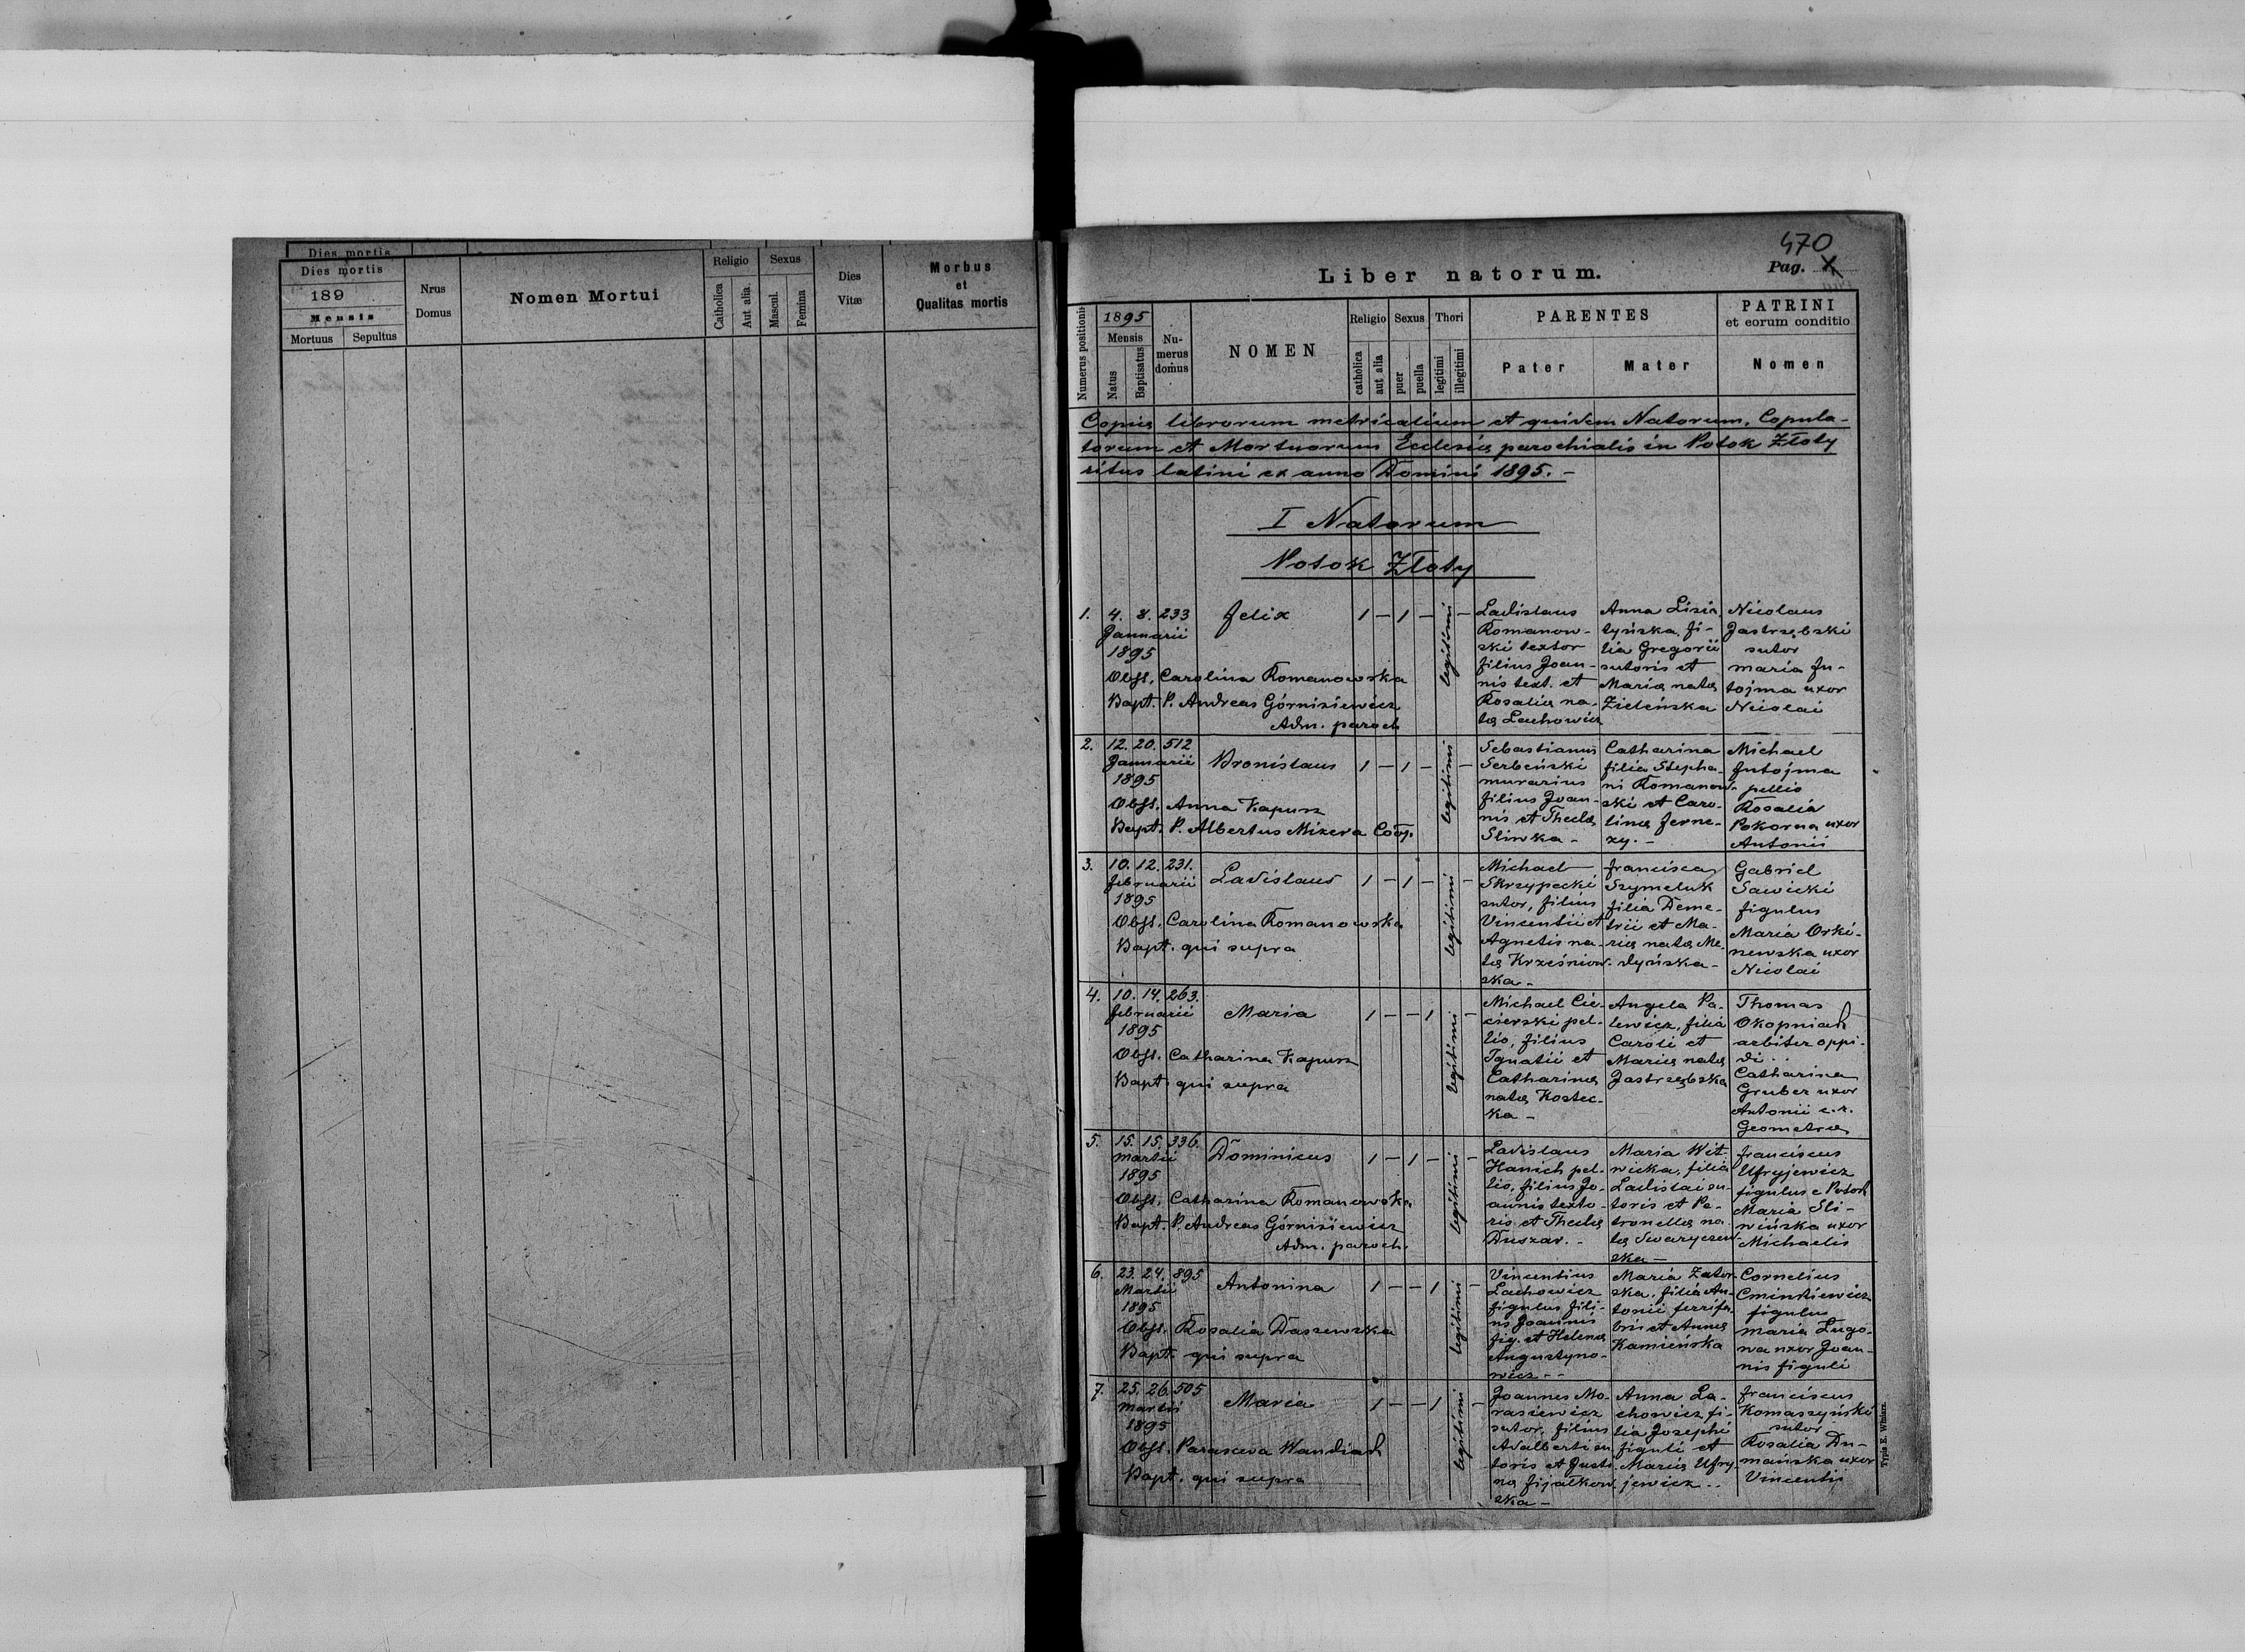 Dies mortis
Dies mortis
189
Mensis
Mortuus Sepultus
Nrus
Domus
Nomen Mortui
Religio
Catholica
Aut alia.
Sexus
Mascul.
Femina
Dies
Vitæ
Morbus
et
Qualitas mortis
470
Pag.
Liber natorum.
Numerus positionis
1895
Mensis
Natus
Baptisatus
Nu-
merus
domus
NOMEN
Religio
catholica
aut alia
Sexus
puer
puella
Thori
legitimi
illegitimi
PARENTES
Pater
Mater
PATRINI
et eorum conditio
Nomen
Copia librorum metricalium et quidem Natorum, Copula-
torum et Mortuorum Ecclesiæ parochialis in Potok Złoty
ritus latini ex anno Domini 1895. -
I Natorum
Potok Złoty
1. 4. 8. 233 Felix 1 - 1 - legitimi -
Januarii
1895
Obst. Carolina Romanowska
Bapt. P. Andreas Górnisiewicz
Adm. paroch
Ladislaus
Romanow-
ski textor
filius Joan-
nis text. et
Rosaliæ na-
tæ Lachowicz
Anna
tyńska, fi-
lia Gregorii
sutoris et
Mariæ natæ
Zieleńska
Nicolaus
Jastrzębski
sutor
Maria Fu-
tojma uxor
Nicolai
2. 12. 20. 512 Bronislaus 1 - 1 - legitimi -
Januarii
1895
Obst. Anna Kapusz
Bapt. P. Albertus Mizera Coop.
Sebastianus
Serbeński
murarius
filius Joan-
nis et Theclæ
Sliwka -
Catharina
filia Stepha-
ni Romanow-
ski et Caro-
linæ Ferne-
zy. -
Michael
Futojma
pellio
Rosalia
Pokorna uxor
Antonii
3. 10. 12. 231. Ladislaus 1 - 1 - legitimi -
Februarii
1895
Obst. Carolina Romanowska
Bapt. qui supra
Michael
Skrzypecki
sutor, filius
Vincentii et
Agnetis na-
tæ Krześniow-
ska -
Francisca
Szymeluk
filia Deme-
trii et Ma-
riæ natæ Me-
dyńska -
Gabriel
Sawicki
figulus
Maria Orki-
newska uxor
Nicolai
4. 10. 14. 263. Maria 1 - - 1 legitimi -
Februarii
1895
Obst. Catharina Kapusz
Bapt. qui supra
Michael Cie-
cierski pel-
lio, filius
Ignatii et
Catharinæ
natæ Kostec-
ka -
Angela Pa-
lewicz, filia
Caroli et
Mariæ natæ
Jastrzębska
Thomas
Okopniak
arbiter oppi-
di
Catharina
Gruber uxor
Antonii c. r.
Geometræ
5. 15. 15. 336. Dominicus 1 - 1 - legitimi -
Martii
1895
Obst. Catharina Romanowska
Bapt. P. Andreas Górnisiewicz
Adm. paroch.
Ladislaus
Hanich pel-
lio, filius Jo-
annis texto-
ris et Theclæ
Duszar. -
Maria Wit-
wicka, filia
Ladislai su-
toris et Pe-
tronellæ na-
tæ Swaryczew-
ska -
Franciscus
Ufryjewicz
figulus e Potok
Maria Sli-
wińska uxor
Michaelis
6. 23. 24. 895 Antonina 1 - - 1 legitimi -
Martii
1895
Obst. Rosalia Daszewska
Bapt. qui supra
Vincentius
Lachowicz
figulus fili-
us Joannis
fig. et Helenæ
Augustyno-
wicz - -
Maria Zator-
ska, filia An-
tonii ferrifa-
bri et Annæ
Kamieńska
Cornelius
figulus
Maria Ługo-
wa uxor Joan-
nis figuli
7. 25. 26. 505 Maria 1 - - 1 legitimi -
Martii
1895
Obst. Parasceva Wandiak
Bapt. qui supra
Joannes Mo-
rasiewicz
sutor, filius
Adalberti su-
toris et Justi-
næ Fijałkow-
ska -
Anna La-
chowicz fi-
lia Josephi
figuli et
Mariæ Ufry-
jewicz - -
Franciscus
Komaszyński
sutor
Rosalia Du-
mańska uxor
Vincentii
Typis E. Winiarz.